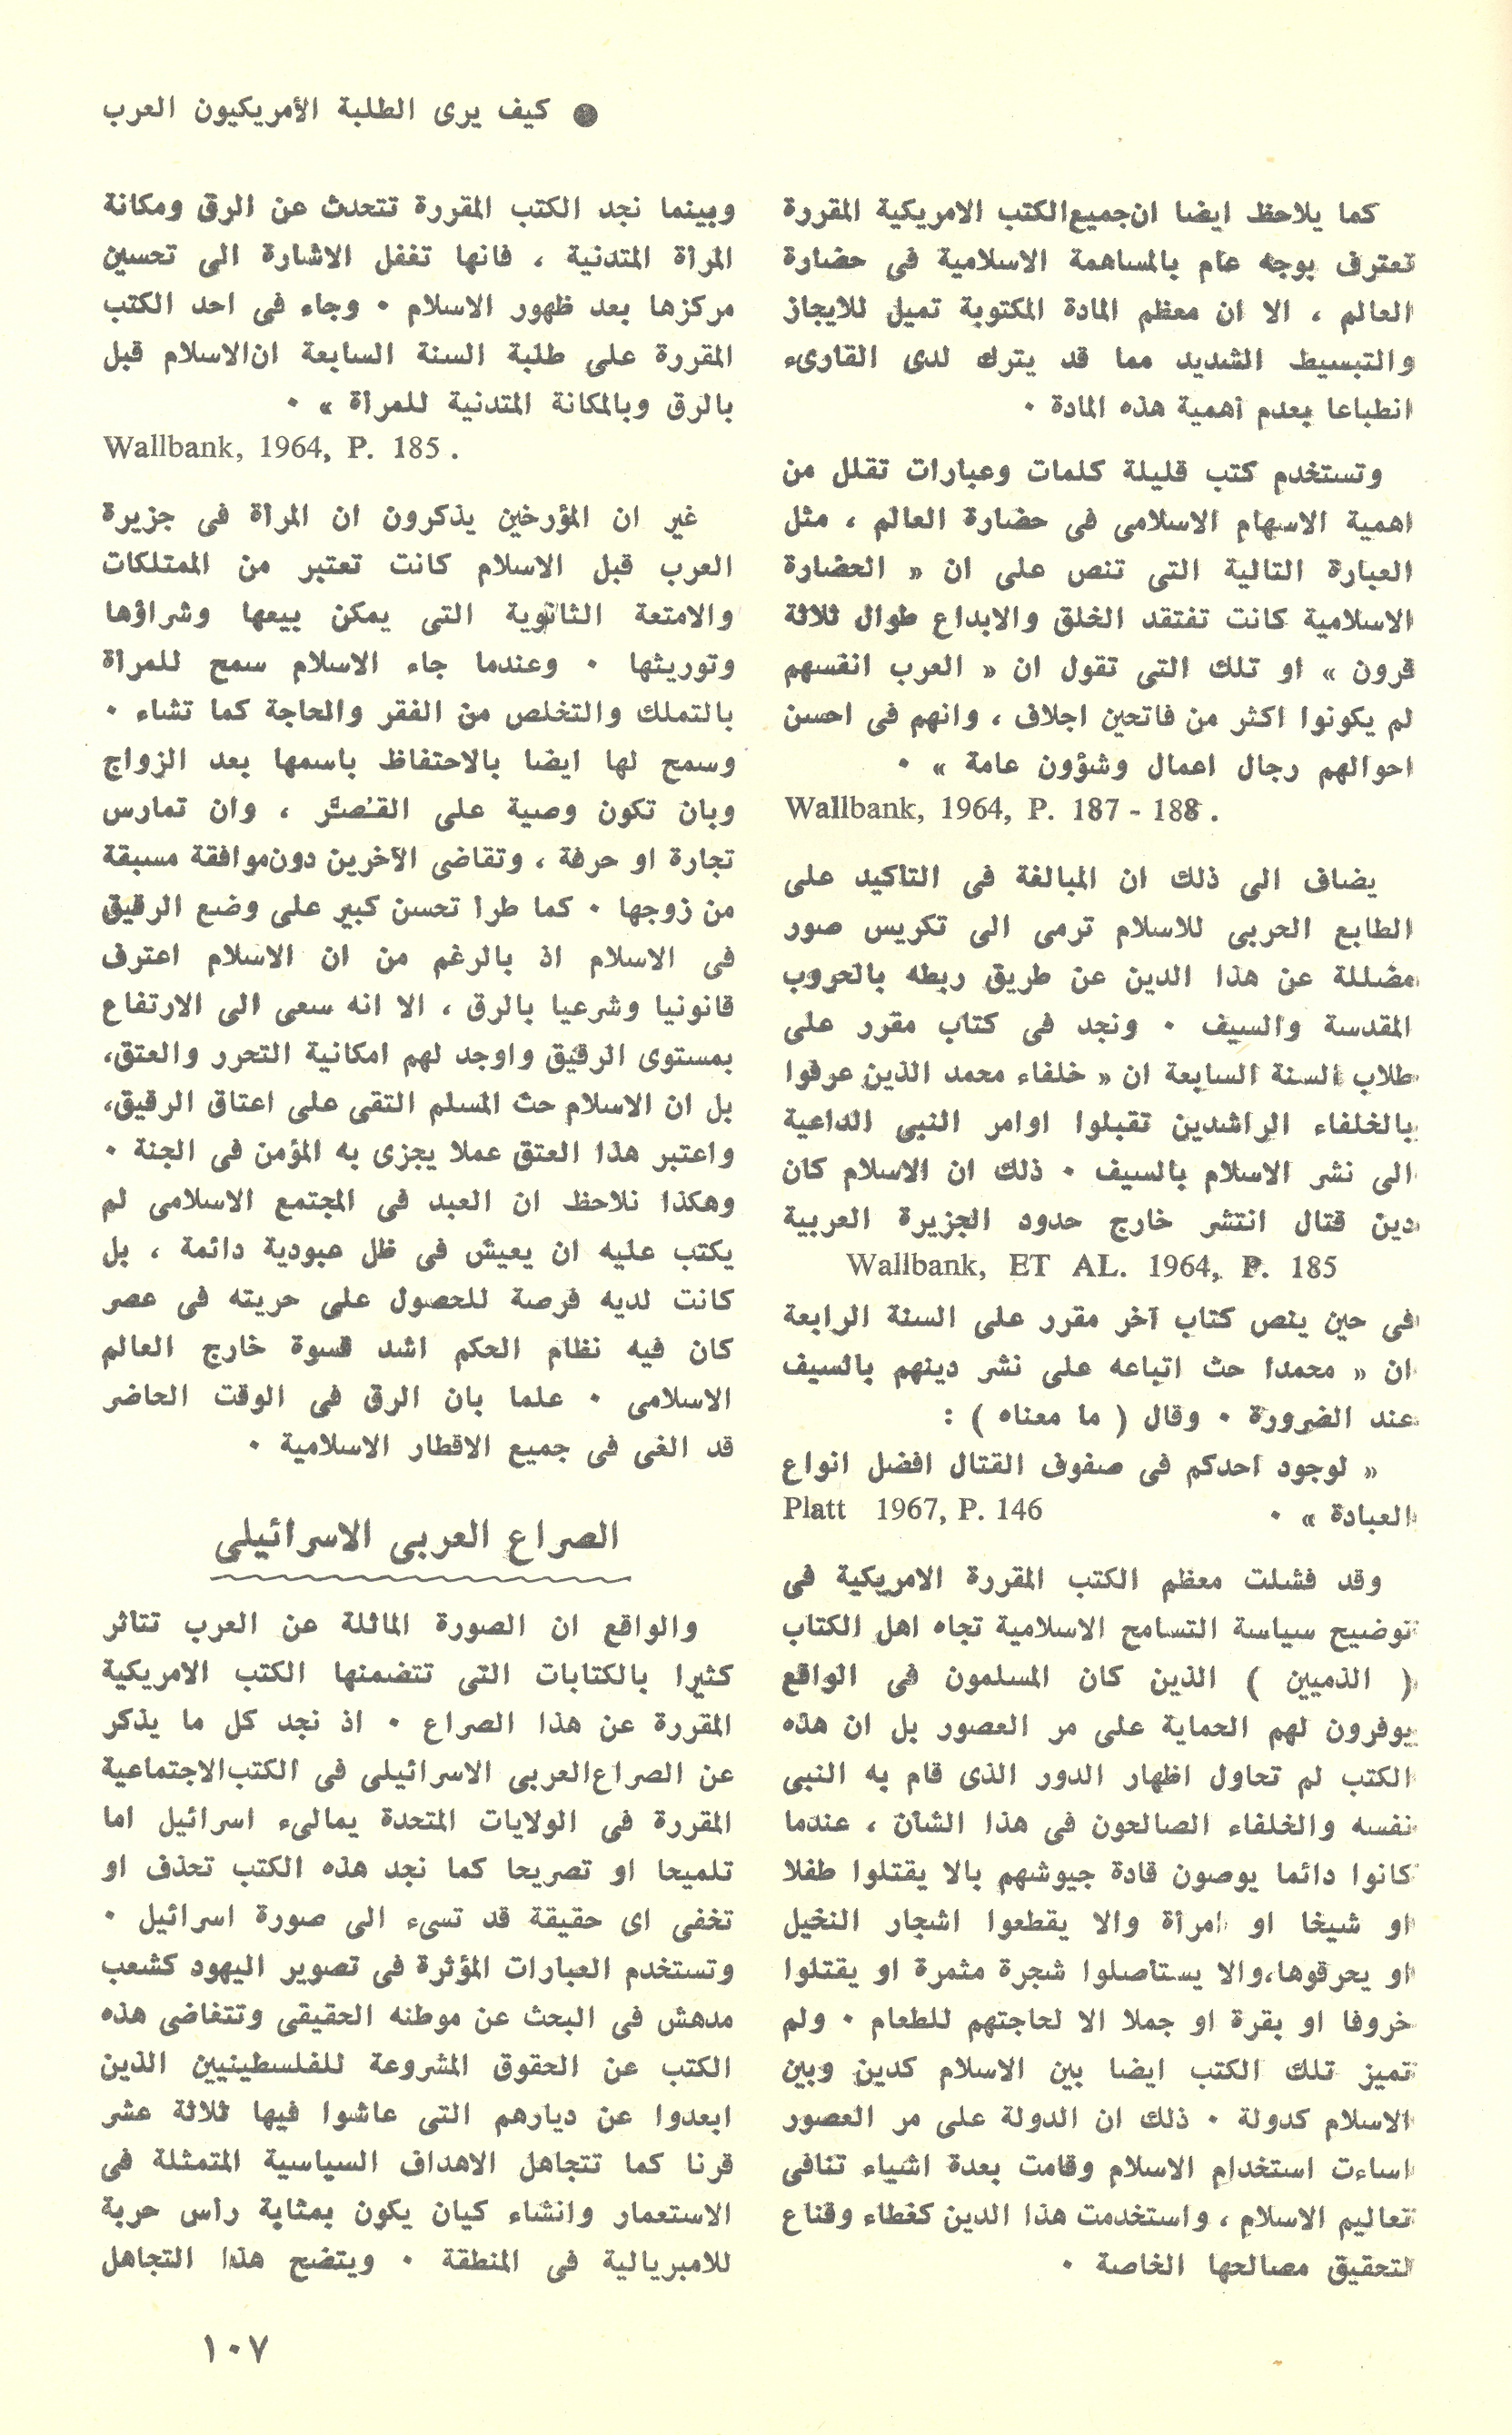 ● كيف يرى الطلبة الأمريكيون العرب
كما يلاحظ ايضا ان جميع الكتب الامريكية المقررة
تعترف بوجه عام بالمساهمة الاسلامية فى حضارة
العالم ، الا ان معظم المادة المكتوبة تميل للايجاز
والتبسيط الشديد مما قد يترك لدى القارىء
انطباعا بعدم أهمية هذه المادة ٠
وتستخدم كتب قليلة كلمات وعبارات تقلل من
اهمية الاسهام الاسلامى فى حضارة العالم ، مثل
العبارة التالية التى تنص على ان « الحضارة
الاسلامية كانت تفتقد الخلق والابداع طوال ثلاثة
قرون » او تلك التى تقول ان « العرب انفسهم
لم يكونوا اكثر من فاتحين اجلاف ، وانهم فى احسن
احوالهم رجال اعمال وشؤون عامة » ٠
Wallbank, 1964, P. 187 - 188 .
يضاف الى ذلك ان المبالغة فى التاكيد على
الطابع الحربى للاسلام ترمى الى تكريس صور
مضللة عن هذا الدين عن طريق ربطه بالحروب
المقدسة والسيف ٠ ونجد فى كتاب مقرر على
طلاب السنة السابعة ان « خلفاء محمد الذين عرفوا
بالخلفاء الراشدين تقبلوا اوامر النبى الداعية
الى نشر الاسلام بالسيف ٠ ذلك ان الاسلام كان
دين قتال انتشر خارج حدود الجزيرة العربية
Wallbank, ET AL. 1964, P. 185
فى حين ينص كتاب آخر مقرر على السنة الرابعة
ان « محمدا حث اتباعه على نشر دينهم بالسيف
عند الضرورة ٠ وقال ( ما معناه ) :
« لوجود احدكم فى صفوف القتال افضل انواع
العبادة » ٠ Platt 1967, P. 146
وقد فشلت معظم الكتب المقررة الامريكية فى
توضيح سياسة التسامح الاسلامية تجاه اهل الكتاب
( الذميين ) الذين كان المسلمون فى الواقع
يوفرون لهم الحماية على مر العصور بل ان هذه
الكتب لم تحاول اظهار الدور الذى قام به النبى
نفسه والخلفاء الصالحون فى هذا الشأن ، عندما
كانوا دائما يوصون قادة جيوشهم بالا يقتلوا طفلا
او شيخا او امرأة والا يقطعوا اشجار النخيل
او يحرقوها،والا يستأصلوا شجرة مثمرة او يقتلوا
خروفا او بقرة او جملا الا لحاجتهم للطعام ٠ ولم
تميز تلك الكتب ايضا بين الاسلام كدين وبين
الاسلام كدولة ٠ ذلك ان الدولة على مر العصور
اساءت استخدام الاسلام وقامت بعدة اشياء تنافى
تعاليم الاسلام ، واستخدمت هذا الدين كغطاء وقناع
لتحقيق مصالحها الخاصة ٠
وبينما نجد الكتب المقررة تتحدث عن الرق ومكانة
المرأة المتدنية ، فانها تغفل الاشارة الى تحسين
مركزها بعد ظهور الاسلام ٠ وجاء فى احد الكتب
المقررة على طلبة السنة السابعة ان الاسلام قبل
بالرق وبالمكانة المتدنية للمرأة » ٠
Wallbank, 1964, P. 185 .
غير ان المؤرخين يذكرون ان المرأة فى جزيرة
العرب قبل الاسلام كانت تعتبر من الممتلكات
والامتعة الثانوية التى يمكن بيعها وشراؤها
وتوريثها ٠ وعندما جاء الاسلام سمح للمرأة
بالتملك والتخلص من الفقر والحاجة كما تشاء ٠
وسمح لها ايضا بالاحتفاظ باسمها بعد الزواج
وبان تكون وصية على القُصَّر ، وان تمارس
تجارة او حرفة ، وتقاضى الآخرين دون موافقة مسبقة
من زوجها ٠ كما طرأ تحسن كبير على وضع الرقيق
فى الاسلام اذ بالرغم من ان الاسلام اعترف
قانونيا وشرعيا بالرق ، الا انه سعى الى الارتفاع
بمستوى الرقيق واوجد لهم امكانية التحرر والعتق،
بل ان الاسلام حث المسلم التقى على اعتاق الرقيق،
واعتبر هذا العتق عملا يجزى به المؤمن فى الجنة ٠
وهكذا نلاحظ ان العبد فى المجتمع الاسلامى لم
يكتب عليه ان يعيش فى ظل عبودية دائمة ، بل
كانت لديه فرصة للحصول على حريته فى عصر
كان فيه نظام الحكم اشد قسوة خارج العالم
الاسلامى ٠ علما بان الرق فى الوقت الحاضر
قد الغى فى جميع الاقطار الاسلامية ٠
الصراع العربى الاسرائيلى
والواقع ان الصورة الماثلة عن العرب تتاثر
كثيرا بالكتابات التى تتضمنها الكتب الامريكية
المقررة عن هذا الصراع ٠ اذ نجد كل ما يذكر
عن الصراع العربى الاسرائيلى فى الكتب الاجتماعية
المقررة فى الولايات المتحدة يمالىء اسرائيل اما
تلميحا او تصريحا كما نجد هذه الكتب تحذف او
تخفى اى حقيقة قد تسىء الى صورة اسرائيل ٠
وتستخدم العبارات المؤثرة فى تصوير اليهود كشعب
مدهش فى البحث عن موطنه الحقيقى وتتغاضى هذه
الكتب عن الحقوق المشروعة للفلسطينيين الذين
ابعدوا عن ديارهم التى عاشوا فيها ثلاثة عشر
قرنا كما تتجاهل الاهداف السياسية المتمثلة فى
الاستعمار وانشاء كيان يكون بمثابة رأس حربة
للامبريالية فى المنطقة ٠ ويتضح هذا التجاهل
١٠٧